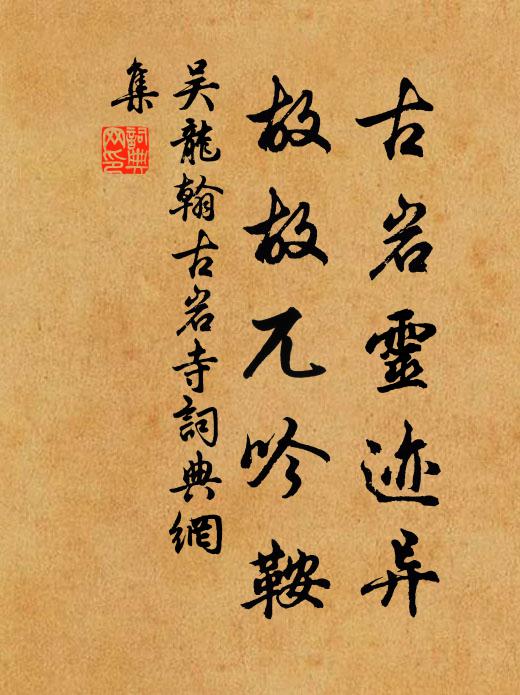 古岩靈迹异
故故兀吟鞍
吴龍翰古岩寺詞典網
集
詞典網印